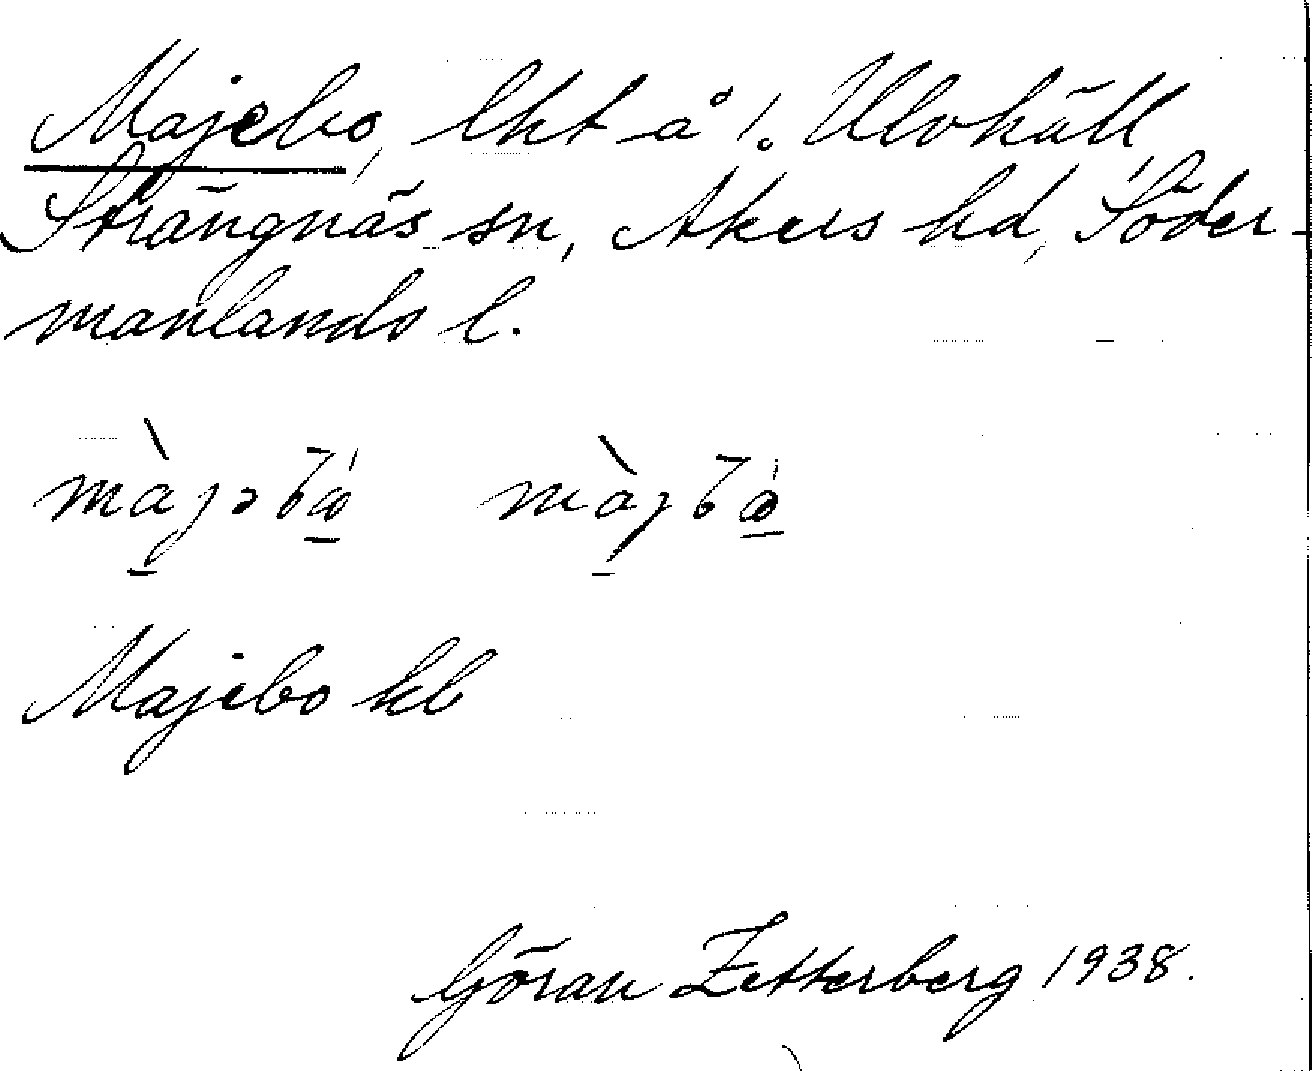 Majebo, lht å 1. Ulvhäll,
Strängnäs sn, Åkers hd, Söder-
manlands l.
Majebo kb
Göran Zetterberg 1938.